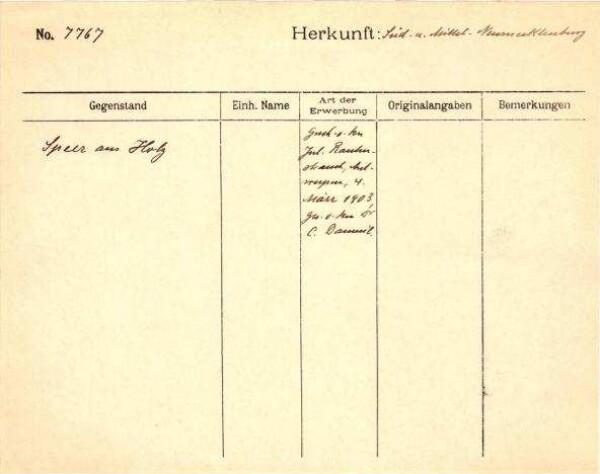 No. 7767 Herkunft: Süd- u. Mittel- Neumecklenburg
Gegenstand Einh. Name Art der Erwerbung Originalangaben Bemerkungen
Speer aus Holz
Gesch. v. Hn
Jul. Rauten-
strauch, Ant-
werpen, 4.
März 1903,
ges. v. Hn Dr
C. Danneil.